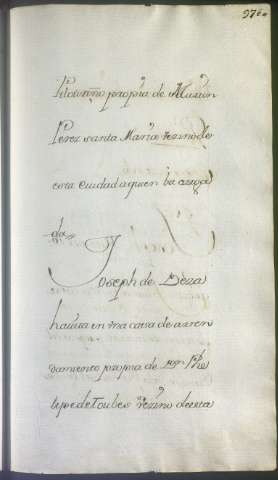 propria de
Perez santa Maria vezino de
esta ciudad a quien ba cargada
Joseph de Deza
havita en una casa de arren
damiento propria de Dn Phe
lipe de Toubes vezino de esta